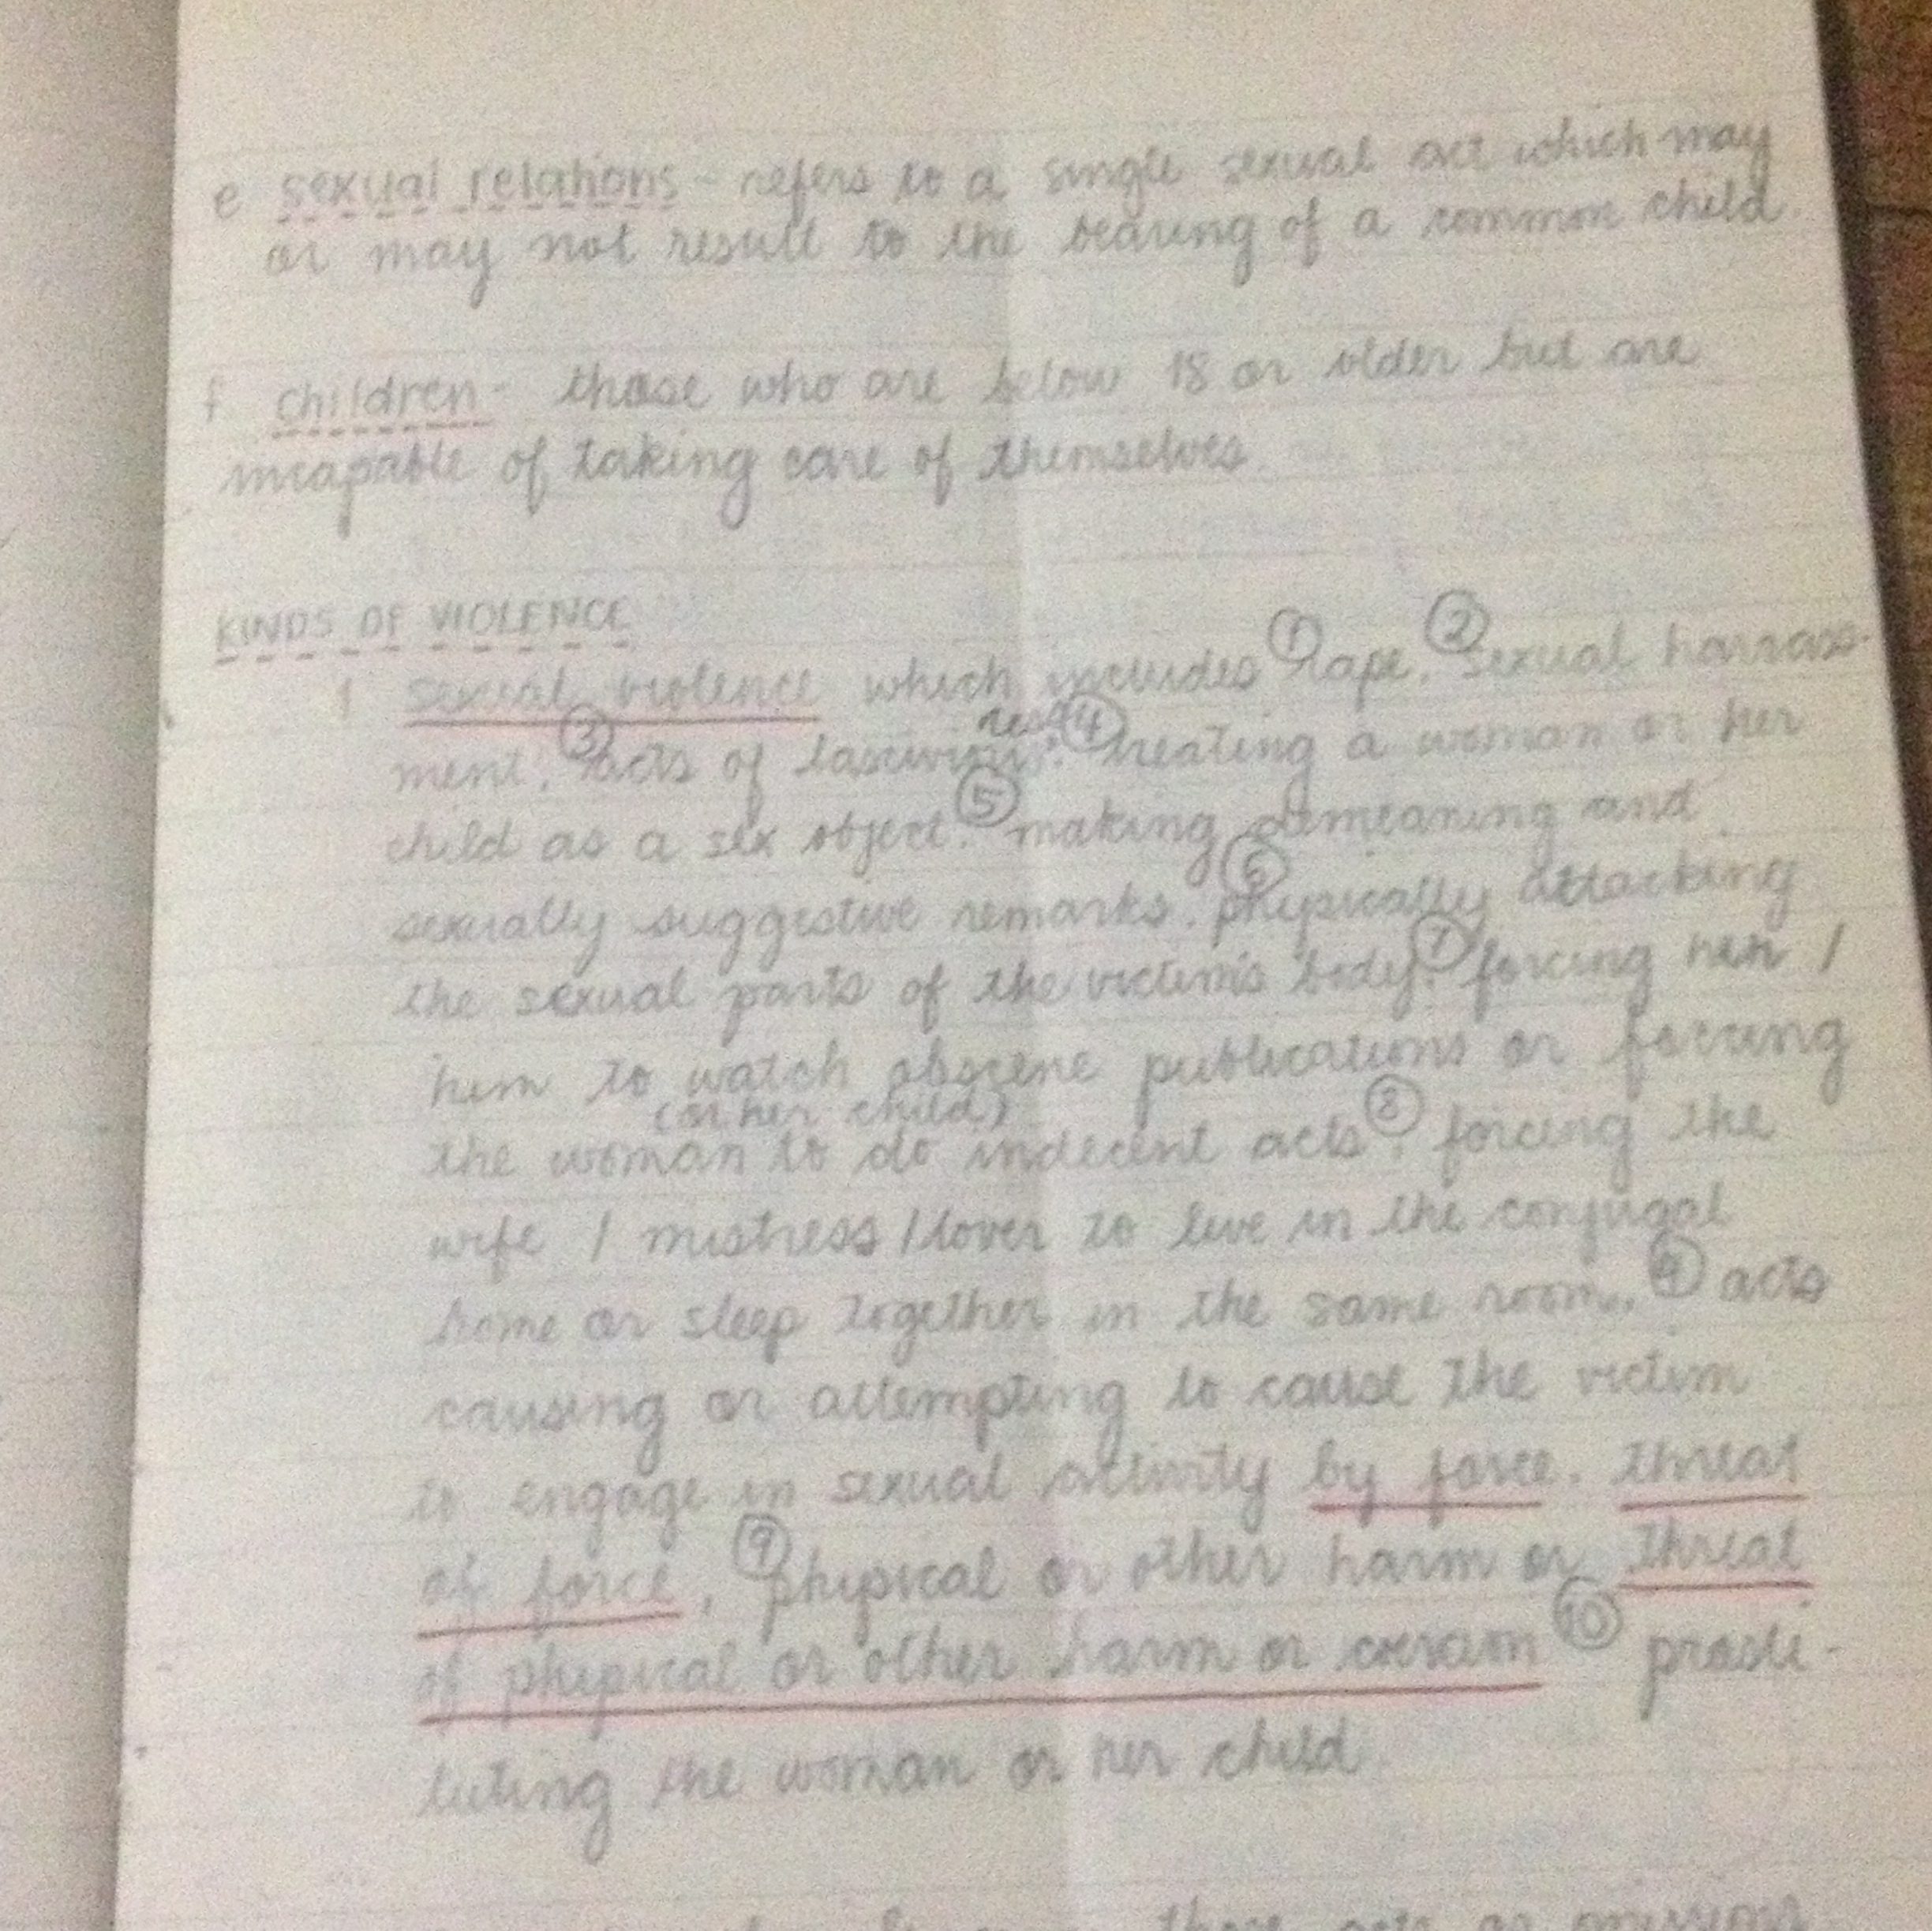 e sexual relations - refers to a single sexual act which may
or may not result to the bearing of a common child.
f children - those who are below 18 or older but are
incapable of taking care of themselves
KINDS OF VIOLENCE
1 sexual violence which includes ① rape, ② sexual harrass-
ness
ment, ③ acts of lascivious, ④ treating a woman or her
child as a sex object. ⑤ making demeaning and
sexually suggestive remarks. ⑥ physically attacking
the sexual parts of the victim's body. ⑦ forcing her /
him to watch obscene publications or forcing
(or her child)
the woman to do indecent acts, ⑧ forcing the
wife / mistress / lover to live in the conjugal
home or sleep together in the same room. ⑨ acts
causing or attempting to cause the victim
to engage in sexual activity by force. threat
of force, ⑨ physical or other harm or threat
of physical or other harm or coercion ⑩ prosti-
tuting the woman or her child.
those acts or omissions